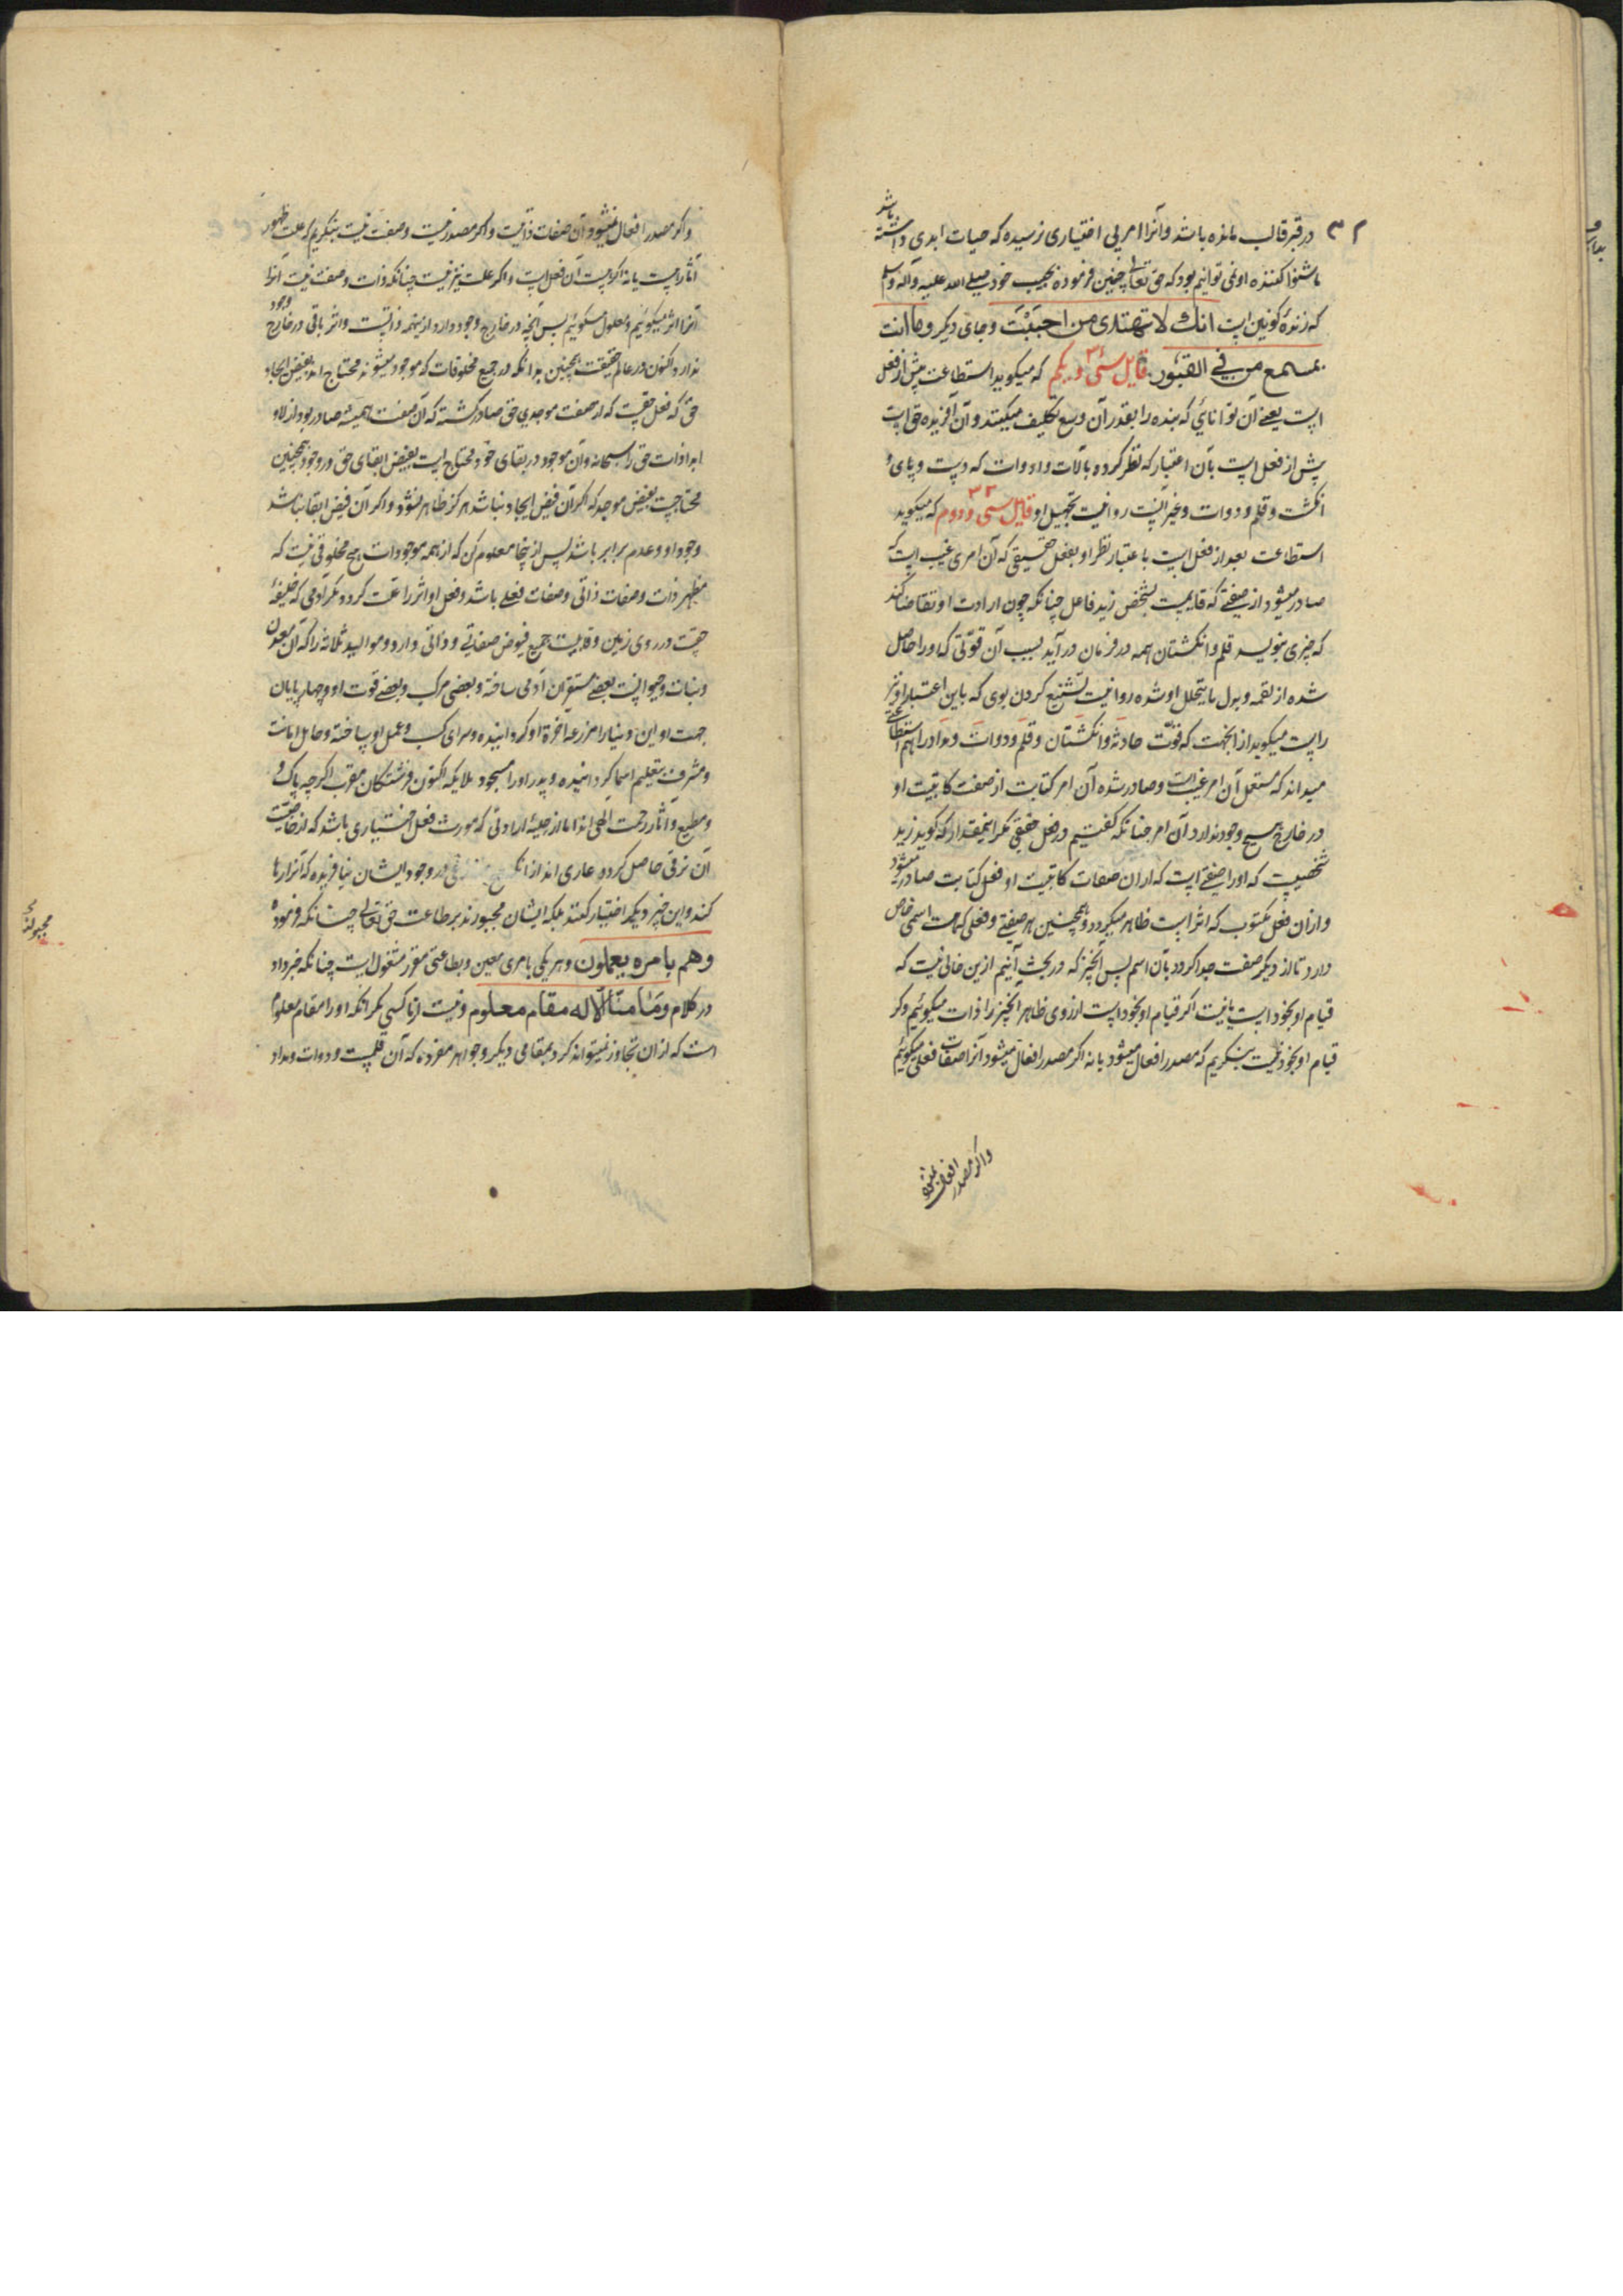 در قبر قالب مانده باشد و آنرا امر بی اختیاری نرسیده که حیات ابدی داشته باشد
ما شنوا کننده او نمی توانیم بود که حق تعالی چنین فرموده بحبیب خود صلی الله علیه و آله وسلم
که زنده کونین است انك لا تهتدی من احببت و جای دیکر وما انت
بمسمع من فی القبور قایل سی و یکم ۳۱ که میکوید استطاعت پیش از فعل
است یعنی آن توانایی که بنده را بقدر آن وسع تکلیف میکنند و آن آفریده حق است
پیش از فعل است بآن اعتبار که نظر کرده بآلات و ادوات که دست و پای و
انکشت و قلم و دوات و غیر آنست روا نیست تجهیل او قایل سی و دوم ۳۲ که میکوید
استطاعت بعد از فعل است باعتبار نظر او بفعل حقیقی که آن امری غیب است که
صادر میشود از صفتی که قایمست بشخص زید فاعل چنانکه چون ارادت او تقاضا کند
که چیزی بنویسد قلم و انکشتان همه در فرمان در آید بسبب آن قوّتی که او را حاصل
شده از لقمه و بدل ما یتحلل او شده روا نیست تشنیع کردن بوی که باین اعتبار او نیز
راست میکوید از آنجهت که قوّت حادثه و انکشتان و قلم و دوات و مداد را هم استطاعتی
میداند که مستعمل آن امر غیب است و صادر شده آن امر کتابت از صفت کاتبیت او
در خارج هیچ وجود ندارد آن امر چنانکه کفتیم در فعل حقیقی مکر اینمقدار که کوید زید
شخصیست که او را صفتی است که از ان صفات کاتبیت او فعل کتابت صادر میشود
و از ان فعل مکتوب که اثر است ظاهر میکردد و همچنین هر صفتی و فعلی که هست اسمی خاص
دارد تا از دیکر صفت جدا کردد بآن اسم پس آنچیز که در بحث آنیم ازین خالی نیست که
قیام او بخود است یا نیست اکر قیام او بخود است از روی ظاهر آنچیز را ذات میکوئیم و کر
قیام او بخود نیست بنکریم که مصدر افعال میشود یا نه اکر مصدر افعال میشود آنرا صفات فعلی میکوئیم
واکر مصدر افعال نمیشود
واکر مصدر افعال نمیشود آن صفات ذاتیست و اکر مصدر نیست و صفت نیست بنکریم که علت ظهور
آثار هست یا نه اکر هست آن فعل است و اکر علت نیز نیست چنانکه ذات و صفت نیست آنرا
آنرا اثر میکوئیم و معلول میکوئیم پس آنچه در خارج وجود دارد از ینهمه ذاتست و اثر باقی در خارج وجود
ندارد اکنون در عالم حقیقت همچنین بدانکه در جمیع مخلوقات که موجود میشوند محتاج اند بفیض ایجاد
حق که فعل حقست که از صفت موجدی حق صادر کشته که آن صفت همیشه صادر بود ازلا و
ابدا ذات حق را سبحانه و آن موجود در بقای خود محتاج است بفیض ابقای حق و در وجود همچنین
محتاجست بفیض موجد که اکر آن فیض ایجاد نباشد هرکز ظاهر نشود و اکر آن فیض ابقا نباشد
وجود او و عدم برابر باشد پس از ینجا معلوم کن که از همه موجودات هیچ مخلوقی نیست که
مظهر ذات و صفات ذاتی و صفات فعلی باشد و فعل او اثر را علت کردد مکر آدمی که خلیفهٔ
حقست در روی زمین و قابلیت جمیع فیوض صفاتی و ذاتی دارد و موالید ثلاثه را که آن معدن
و نبات و حیوانست بعضی مستقر آن آدمی ساخته و بعضی مرکب و بعضی قوت او و چهارپایان
جهت او این دنیا را مزرعه آخرة او کردانیده و سرای کسب و عمل او ساخته و حامل امانت
و مشرف بتعلیم اسما کردانیده و پدر او را مسجود ملایکه اکنون فرشتکان مقرب اکرچه پاک و
و مطیع و آثار رحمت الهی اند اما از حلیهٔ ارادتی که مورث فعل اختیاری باشد که از خاصیت
آن ترقی حاصل کردد عاری اند از آنکه حق در وجود ایشان نیافریده که آنرا رها
کنند و این چیز دیکر اختیار کنند بلکه ایشان مجبورند بر طاعت حق تعالی چنانکه فرموده
وهم بامره یعملون و هر یکی بامری معین و بطاعتی مقرر مشغول است چنانکه خبر داد
در کلام وما منا الا له مقام معلوم و نیست از ما کسی مکر آنکه او را مقام معلوم
است که از ان تجاوز نمیتواند کرد بمقامی دیکر و جواهر مفرده که آن قلمست و دوات و مداد